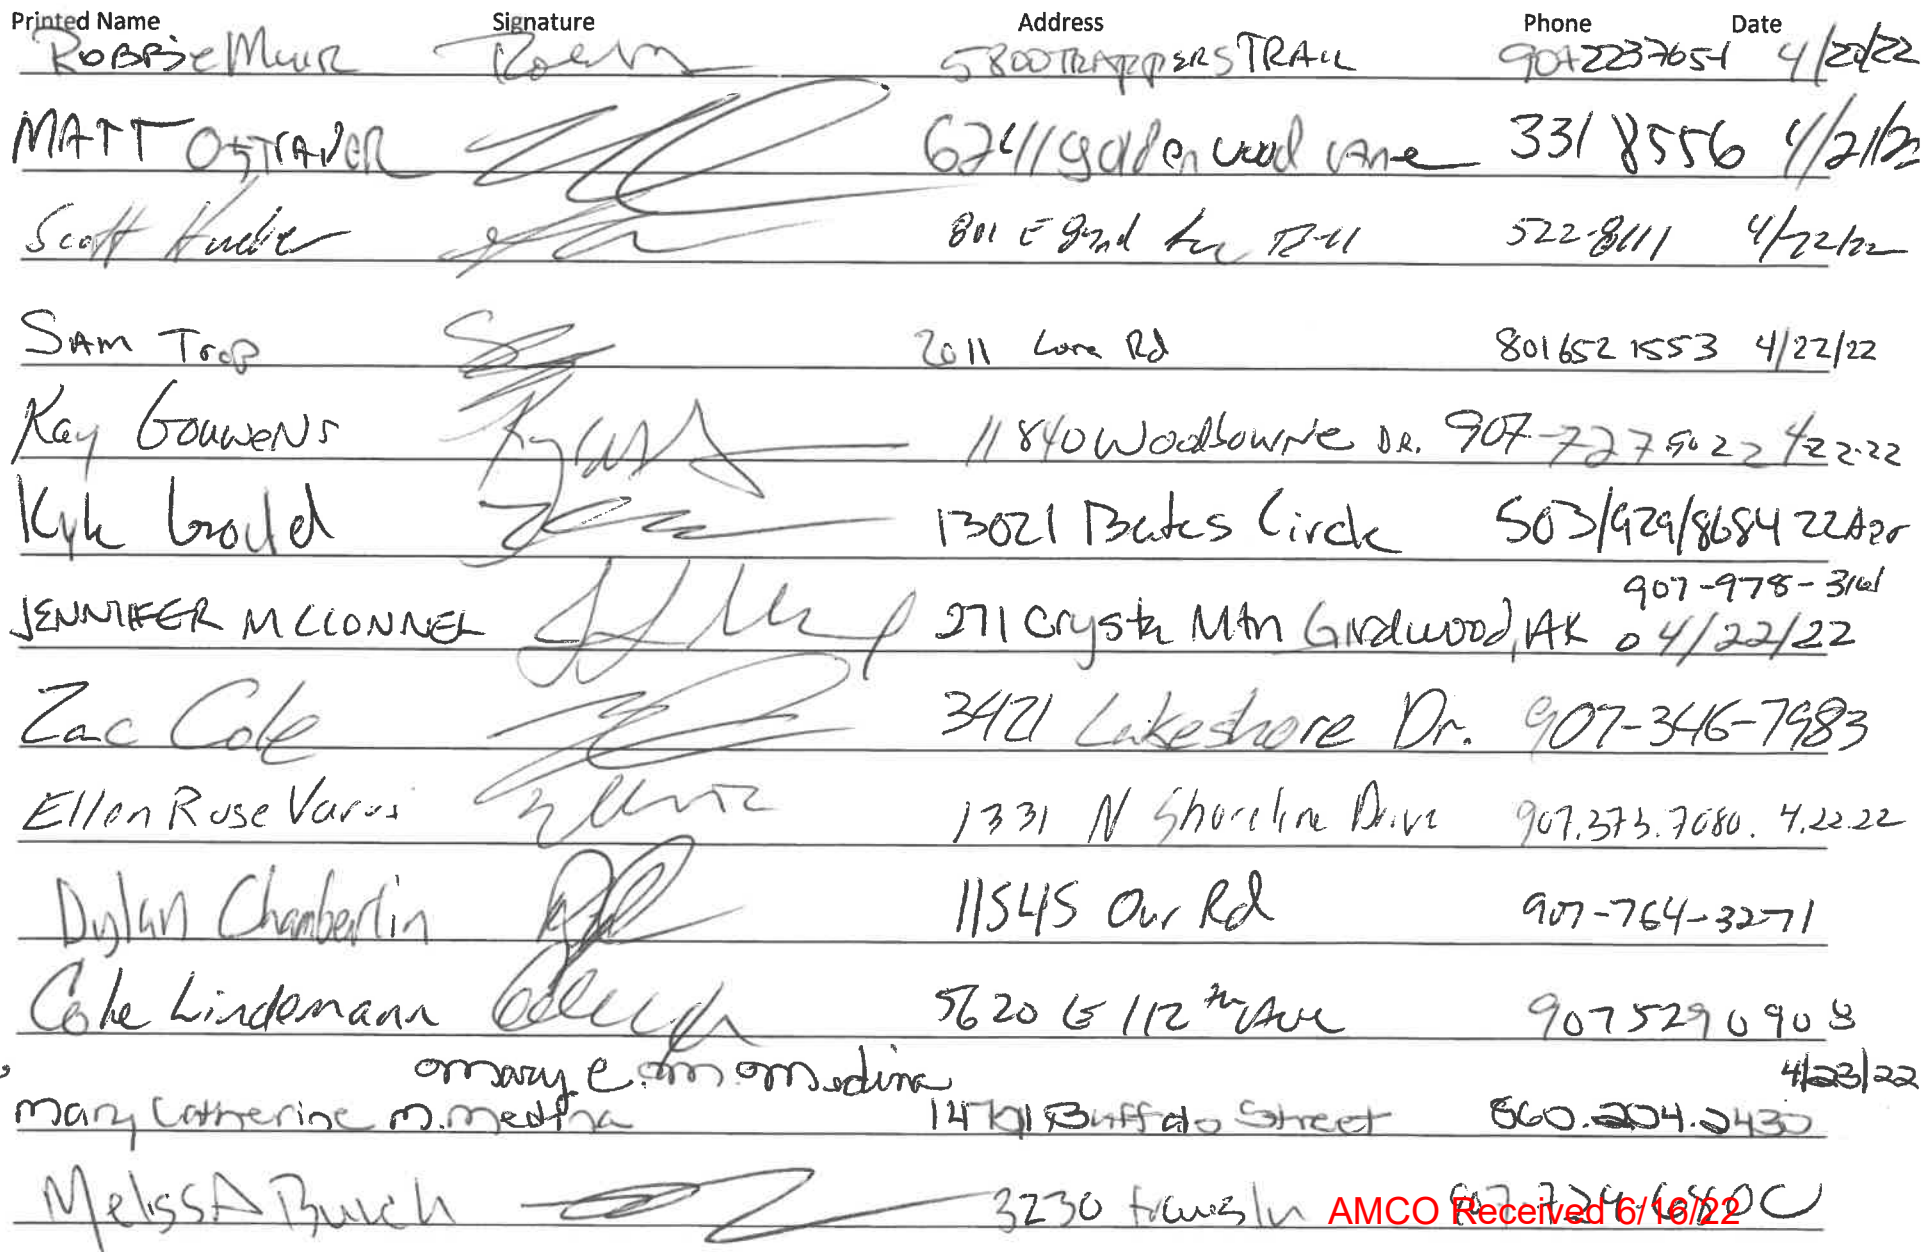 Printed Name Signature Address Phone Date
Robbie Muir 5800 TRAPPERS TRAIL 9042237651 4/20/22
MATT OSTRANDER golden wood lane 331 8556 4/21/22
Scott 801 E 82nd Ave 522-8111 4/22/22
SAM Trop 2011 Lore Rd 801 652 1553 4/22/22
Kay GouweNs 11840 Woodbourne DR. 907-727 5022 4/22-22
Kyle Gould 13021 Bates Circle 503/929/8684 22Apr
907-978-3161
JENNIFER MCCONNEL 271 Crystal Mtn Girdwood, AK 04/22/22
Zac Cole 3421 Lakeshore Dr. 907-346-7983
Ellen Rose Varosi 1331 N Shoreline Drive 907.373.7080. 4.22.22
Dylan Chamberlin 11545 Our Rd 907-764-3271
Cole Lindemann 5620 E 112th Ave 907 529 0908
Mary C. M. Medina 4/23/22
Mary Catherine M. Medina Buffalo Street 860.204.2430
MelissA Burch 3230 AMCO Received 6/16/22